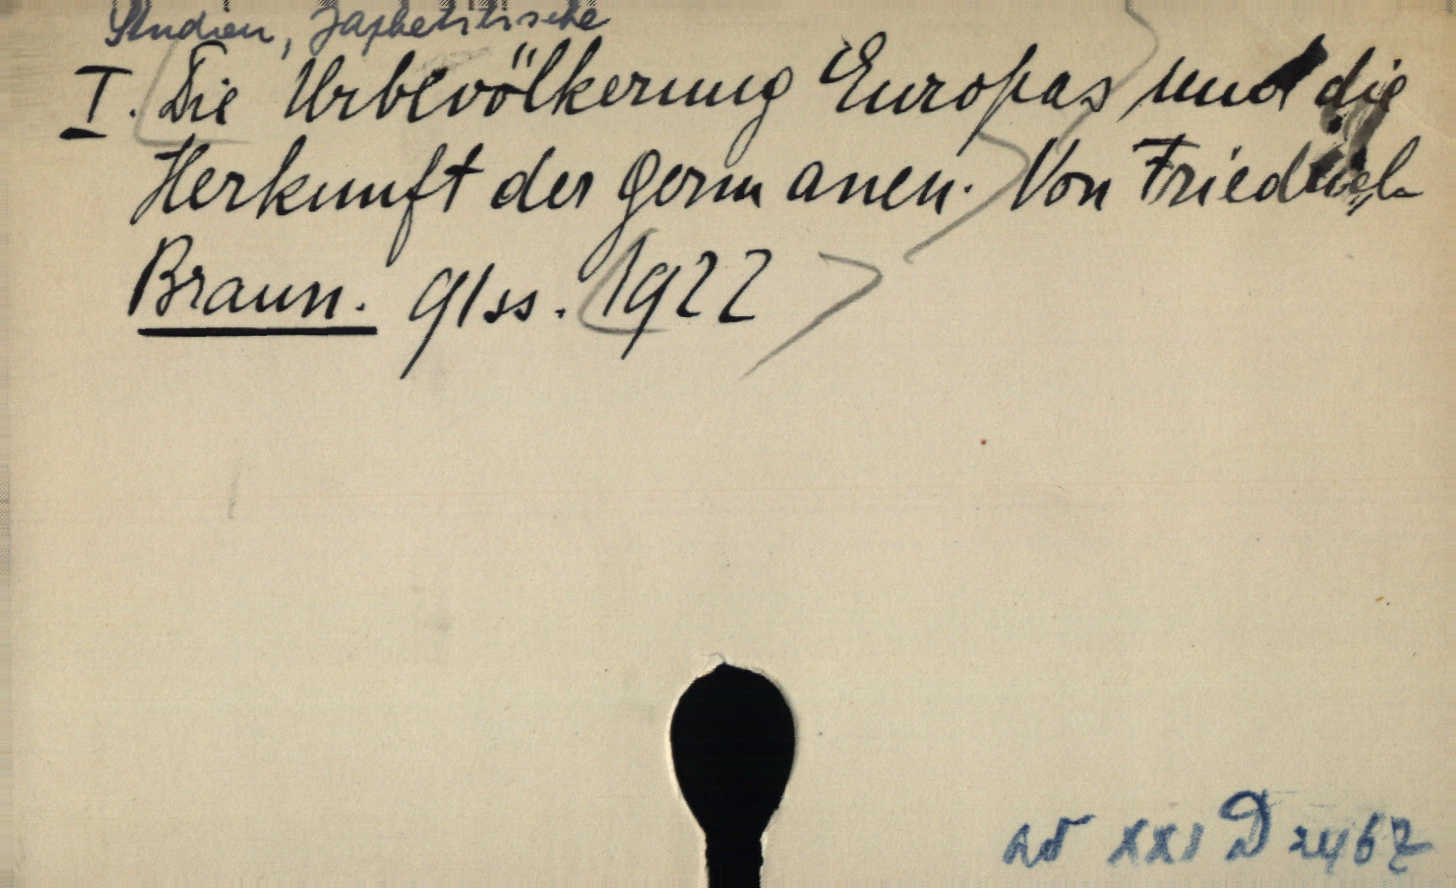 Studien, Japhetitische
I. Die Urbevölkerung Europas und die
Herkunft der Germanen. Von Friedrich
Braun. 91 ss. 1922
ad XXI D 2467